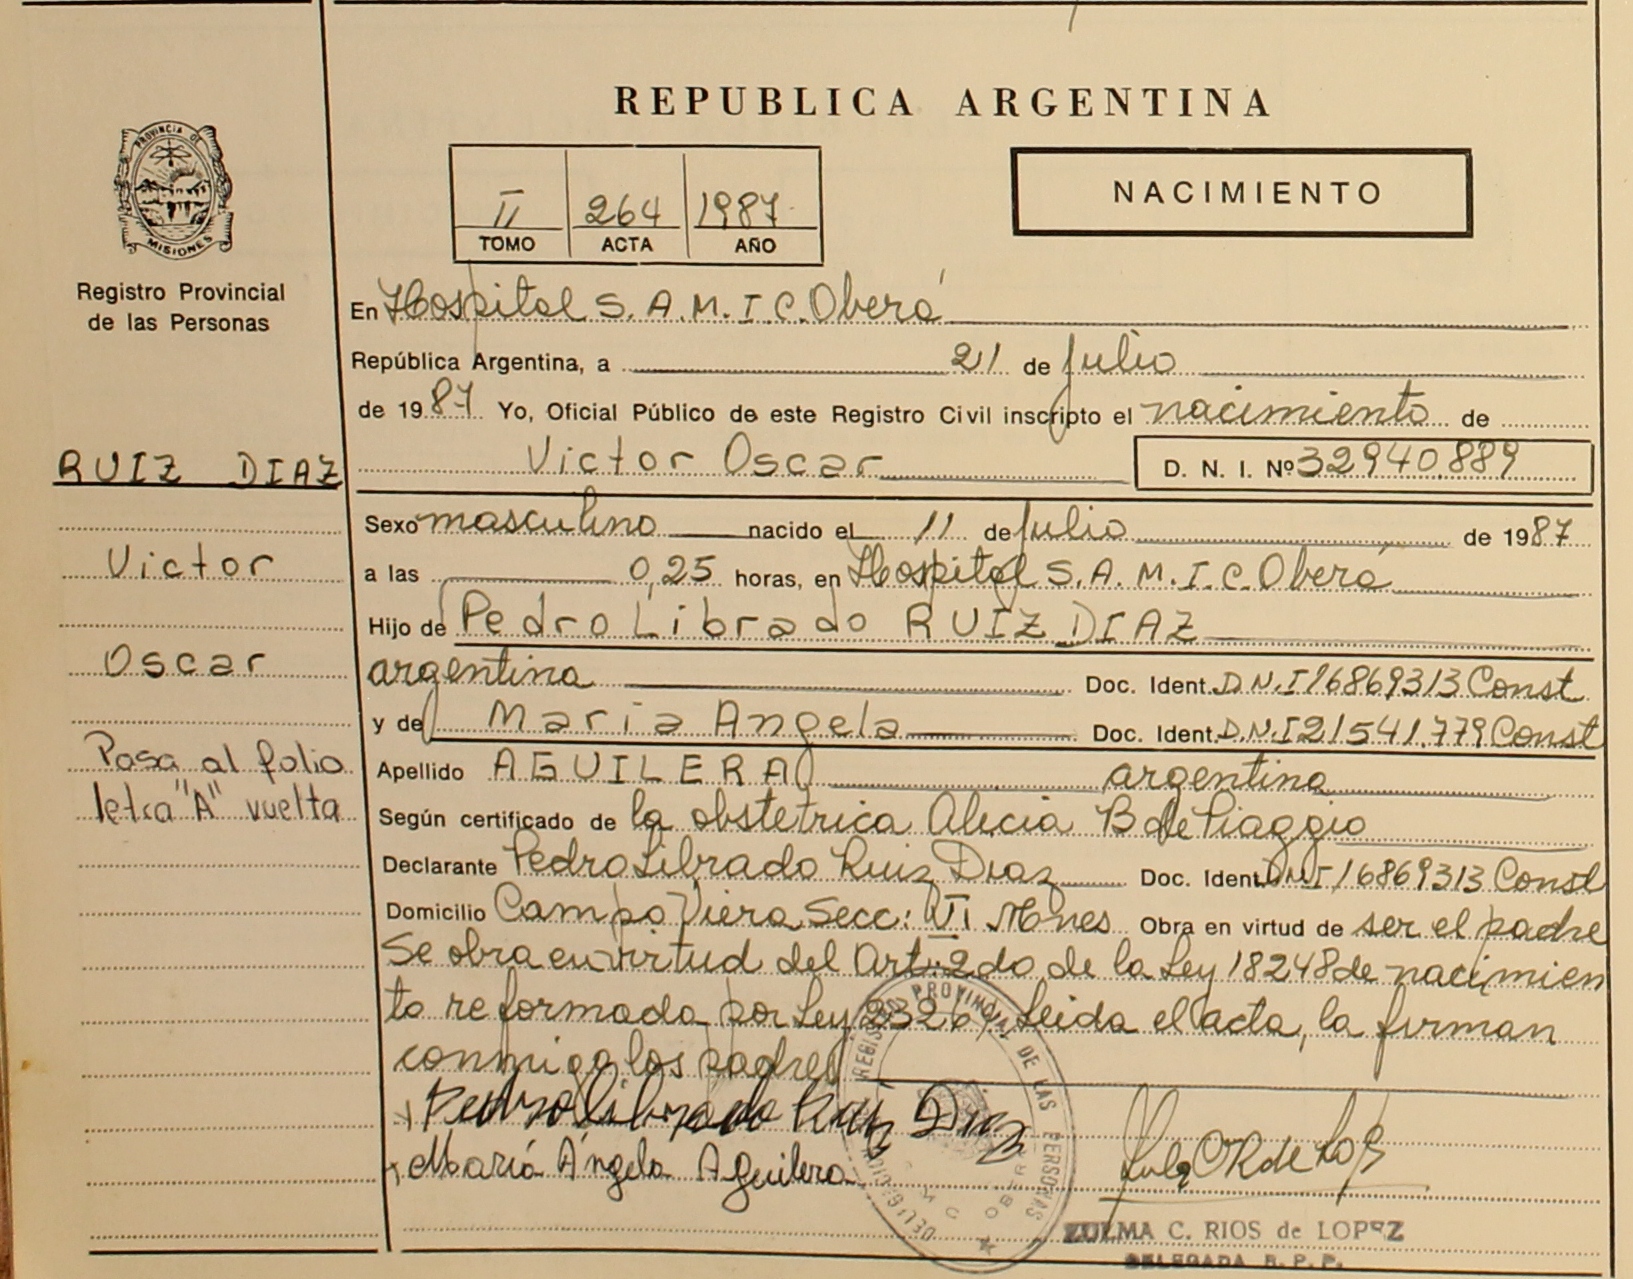 REPUBLICA ARGENTINA
PROVINCIA DE
MISIONES
Registro Provincial
de las Personas
II 264 1987
TOMO ACTA AÑO
NACIMIENTO
En Hospital S.A.M.I.C. Oberá
República Argentina, a 21 de julio
de 1987 Yo, Oficial Público de este Registro Civil inscripto el nacimiento de
Victor Oscar D. N. I. Nº 32940.889
RUIZ DIAZ
Victor
Oscar
Pasa al folio
letra "A" vuelta
Sexo masculino nacido el 11 de julio de 1987
a las 0,25 horas, en Hospital S.A.M.I.C. Oberá
Hijo de Pedro Librado RUIZ DIAZ
argentina Doc. Ident. D.N.I 16869313 Const
y de Maria Angela Doc. Ident. D.N.I 21541.779 Const
Apellido AGUILERA argentina
Según certificado de la obstetrica Alicia B de Piaggio
Declarante Pedro Librado Ruiz Diaz Doc. Ident. DNI 16869313 Const
Domicilio Campo Viera Secc: VI Mnes Obra en virtud de ser el padre
Se obra en virtud del Art: 2do de la Ley 18248 de nacimien
to reformada por Ley 23264 Leida el acta, la firman
conmigo los padres
Pedro Librado Ruiz Diaz
María Ángela Aguilera
REGISTRO PROVINCIAL DE LAS PERSONAS
OBERA
ZULMA C. RIOS de LOPEZ
DELEGADA R. P. P.